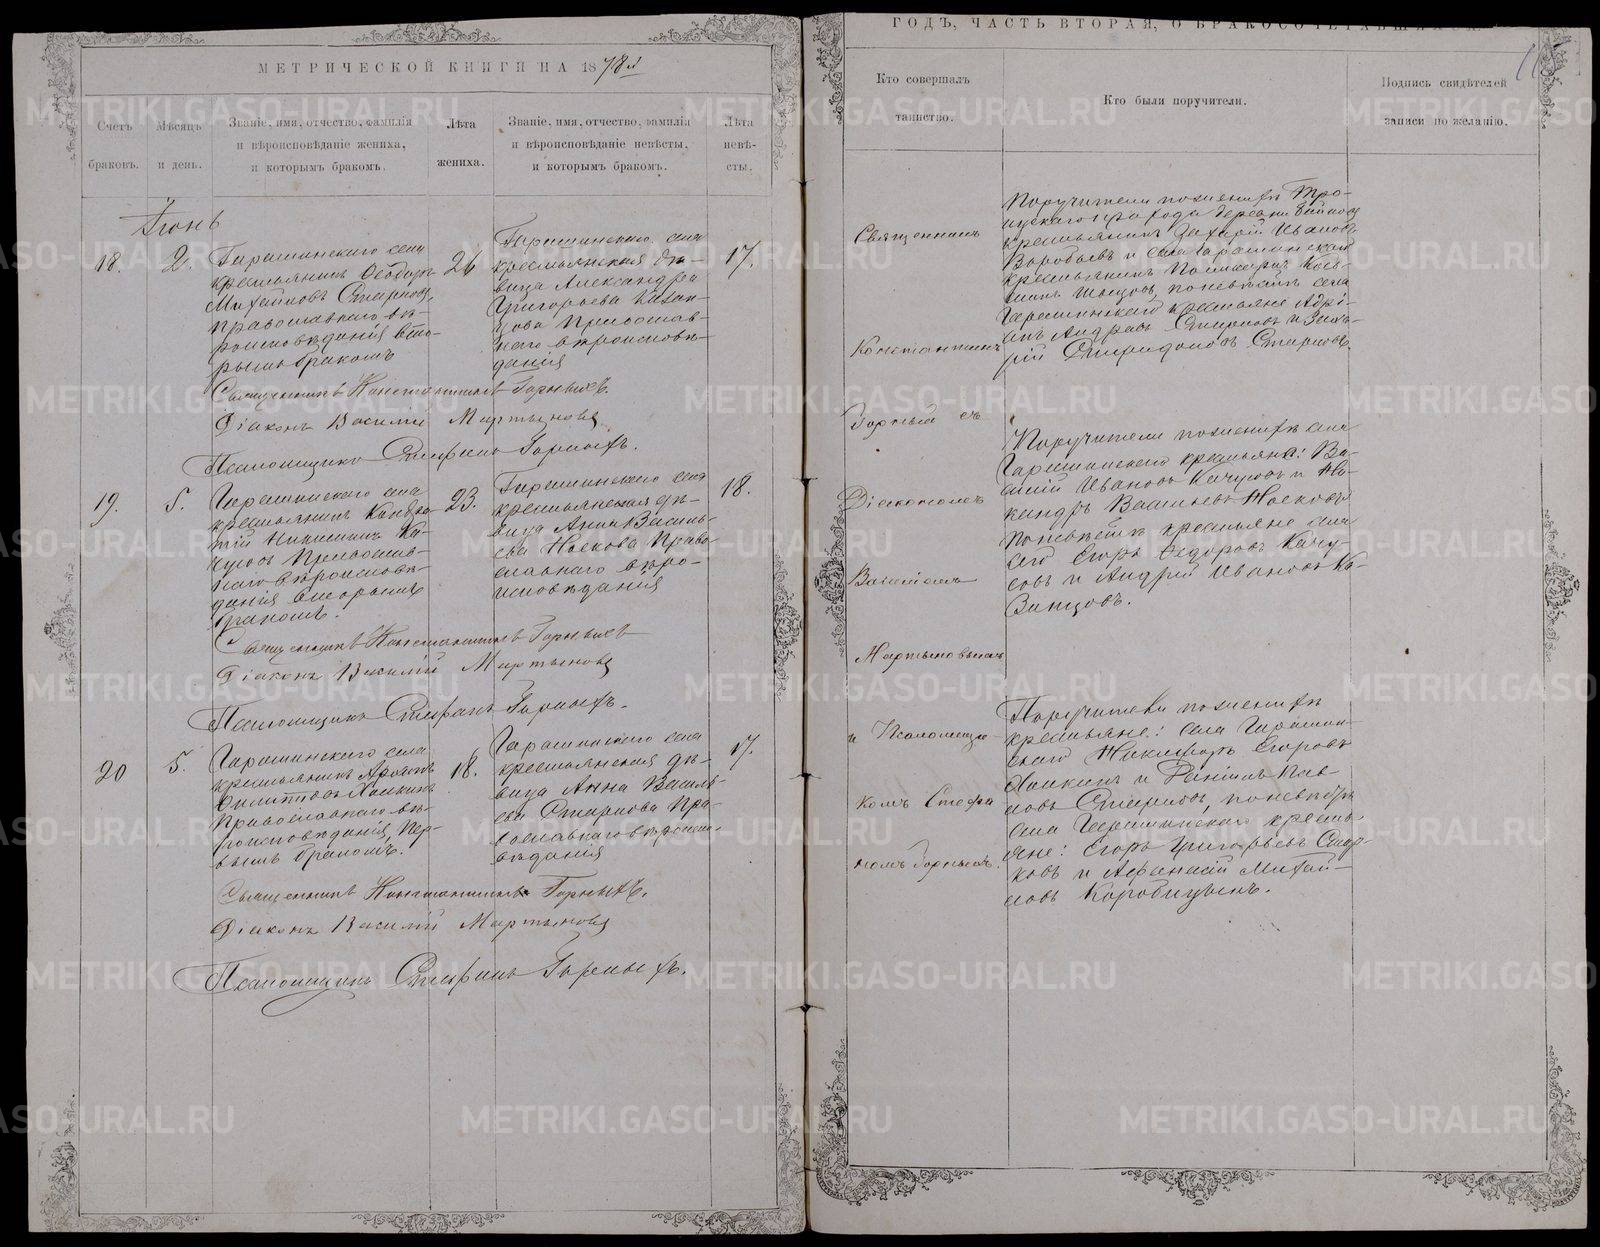 МЕТРИЧЕСКОЙ КНИГИ НА 1878й
Счетъ браковъ.
Мѣсяцъ и день.
Званіе, имя, отчество, фамилія и вѣроисповѣданіе жениха, и которымъ бракомъ.
Лѣта жениха.
Званіе, имя, отчество, фамилія и вѣроисповѣданіе невѣсты, и которымъ бракомъ.
Лѣта невѣ-
сты.
Іюнь
18.
2.
Гарашинскаго села
крестьянинъ Ѳеодоръ
Михайловъ Смирновъ,
православнаго вѣ-
роисповѣданія вто-
рымъ бракомъ
26
Гарашинскаго села
крестьянская дѣ-
вица Александра
Григорьева Казан-
цова Православ-
наго вѣроисповѣ-
данія
17.
Священникъ Константинъ Горныхъ.
Діаконъ Василій Мартыновъ
Псаломщикъ Стефанъ Горныхъ.
19.
5.
Гарашинскаго села
крестьянинъ Кондра-
тій
Православ-
наго вѣроисповѣ-
данія вторымъ
бракомъ.
23.
Гарашинскаго села
крестьянская дѣ-
вица Анна Василь-
ева Носкова Право-
славнаго вѣро-
исповѣданія
18.
Священникъ Константинъ Горныхъ
Діаконъ Василій Мартыновъ
Псаломщикъ Стефанъ Горныхъ.
20
5.
Гарашинскаго села
крестьянинъ
Филипповъ
Православнаго вѣ-
роисповѣданія, пер-
вымъ бракомъ.
18.
Гарашинскаго села
крестьянская дѣ-
вица Анна Василь-
ева Смирнова Пра-
вославнаго вѣроиспо-
вѣданія
17.
Священникъ Константинъ Горныхъ.
Діаконъ Василій Мартыновъ
Псаломщикъ Стефанъ Горныхъ.
ГОДЪ, ЧАСТЬ ВТОРАЯ, О БРАКОСОЧЕТАВШИХСЯ.
Кто совершалъ таинство.
Кто были поручители.
Подпись свидѣтелей записи по желанію.
Священникъ
Константинъ
Горныхъ съ
Діакономъ
Василіемъ
Мартыновымъ
и Псаломщи-
комъ Стефа
номъ Горныхъ.
Поручители по женихѣ Тро-
ицкаго города деревни
крестьянинъ Захарій Ивановъ
Воробьевъ и села Гарашинскаго
крестьянинъ
по невѣстѣ села
Гарашинскаго крестьяне Адрі-
анъ Андреевъ Смирновъ и Заха-
рій Спиридоновъ Смирновъ.
Поручители по женихѣ села
Гарашинскаго крестьяне: Ва-
силій Ивановъ и
Васильевъ Носковъ
по невѣстѣ крестьяне села
сего Егоръ Ѳедоровъ
и Андрей Ивановъ Ка-
занцовъ.
Поручители по женихѣ
крестьяне: села Гарашин-
скаго Никифоръ Егоровъ
и Даніилъ Пав-
ловъ Смирновъ, по невѣстѣ
села Гарашинскаго кресть-
яне: Егоръ Григорьевъ
и Афанасій Михай-
ловъ Коробицынъ.
METRIKI.GASO-URAL.RU